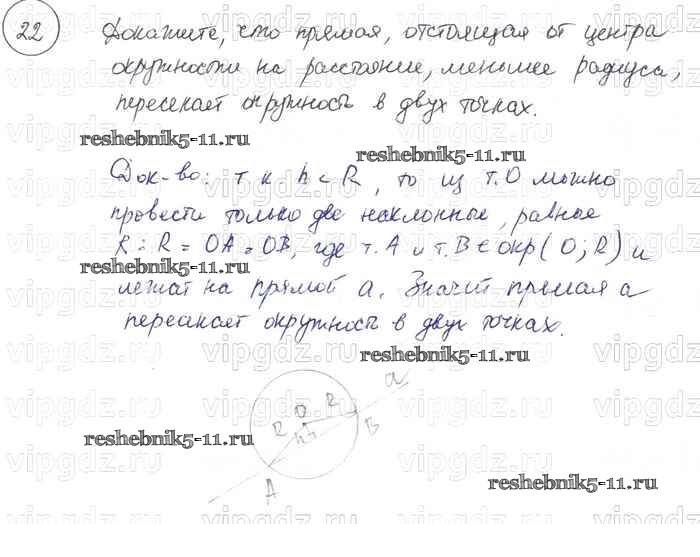 22 Докажите, что прямая, отстоящая от центра
окружности на расстояние, меньшее радиуса,
пересекает окружность в двух точках.
reshebnik5-11.ru
reshebnik5-11.ru
Док-во: т к h < R, то из т.О можно
провести только две наклонные, равные
R: R = OA = OB, где т.А и т.В ∈ окр(О; R) и
reshebnik5-11.ru
лежат на прямой а. Значит прямая а
пересекает окружность в двух точках.
reshebnik5-11.ru
a
R O R
h
B
reshebnik5-11.ru
A
reshebnik5-11.ru
vipgdz.ru